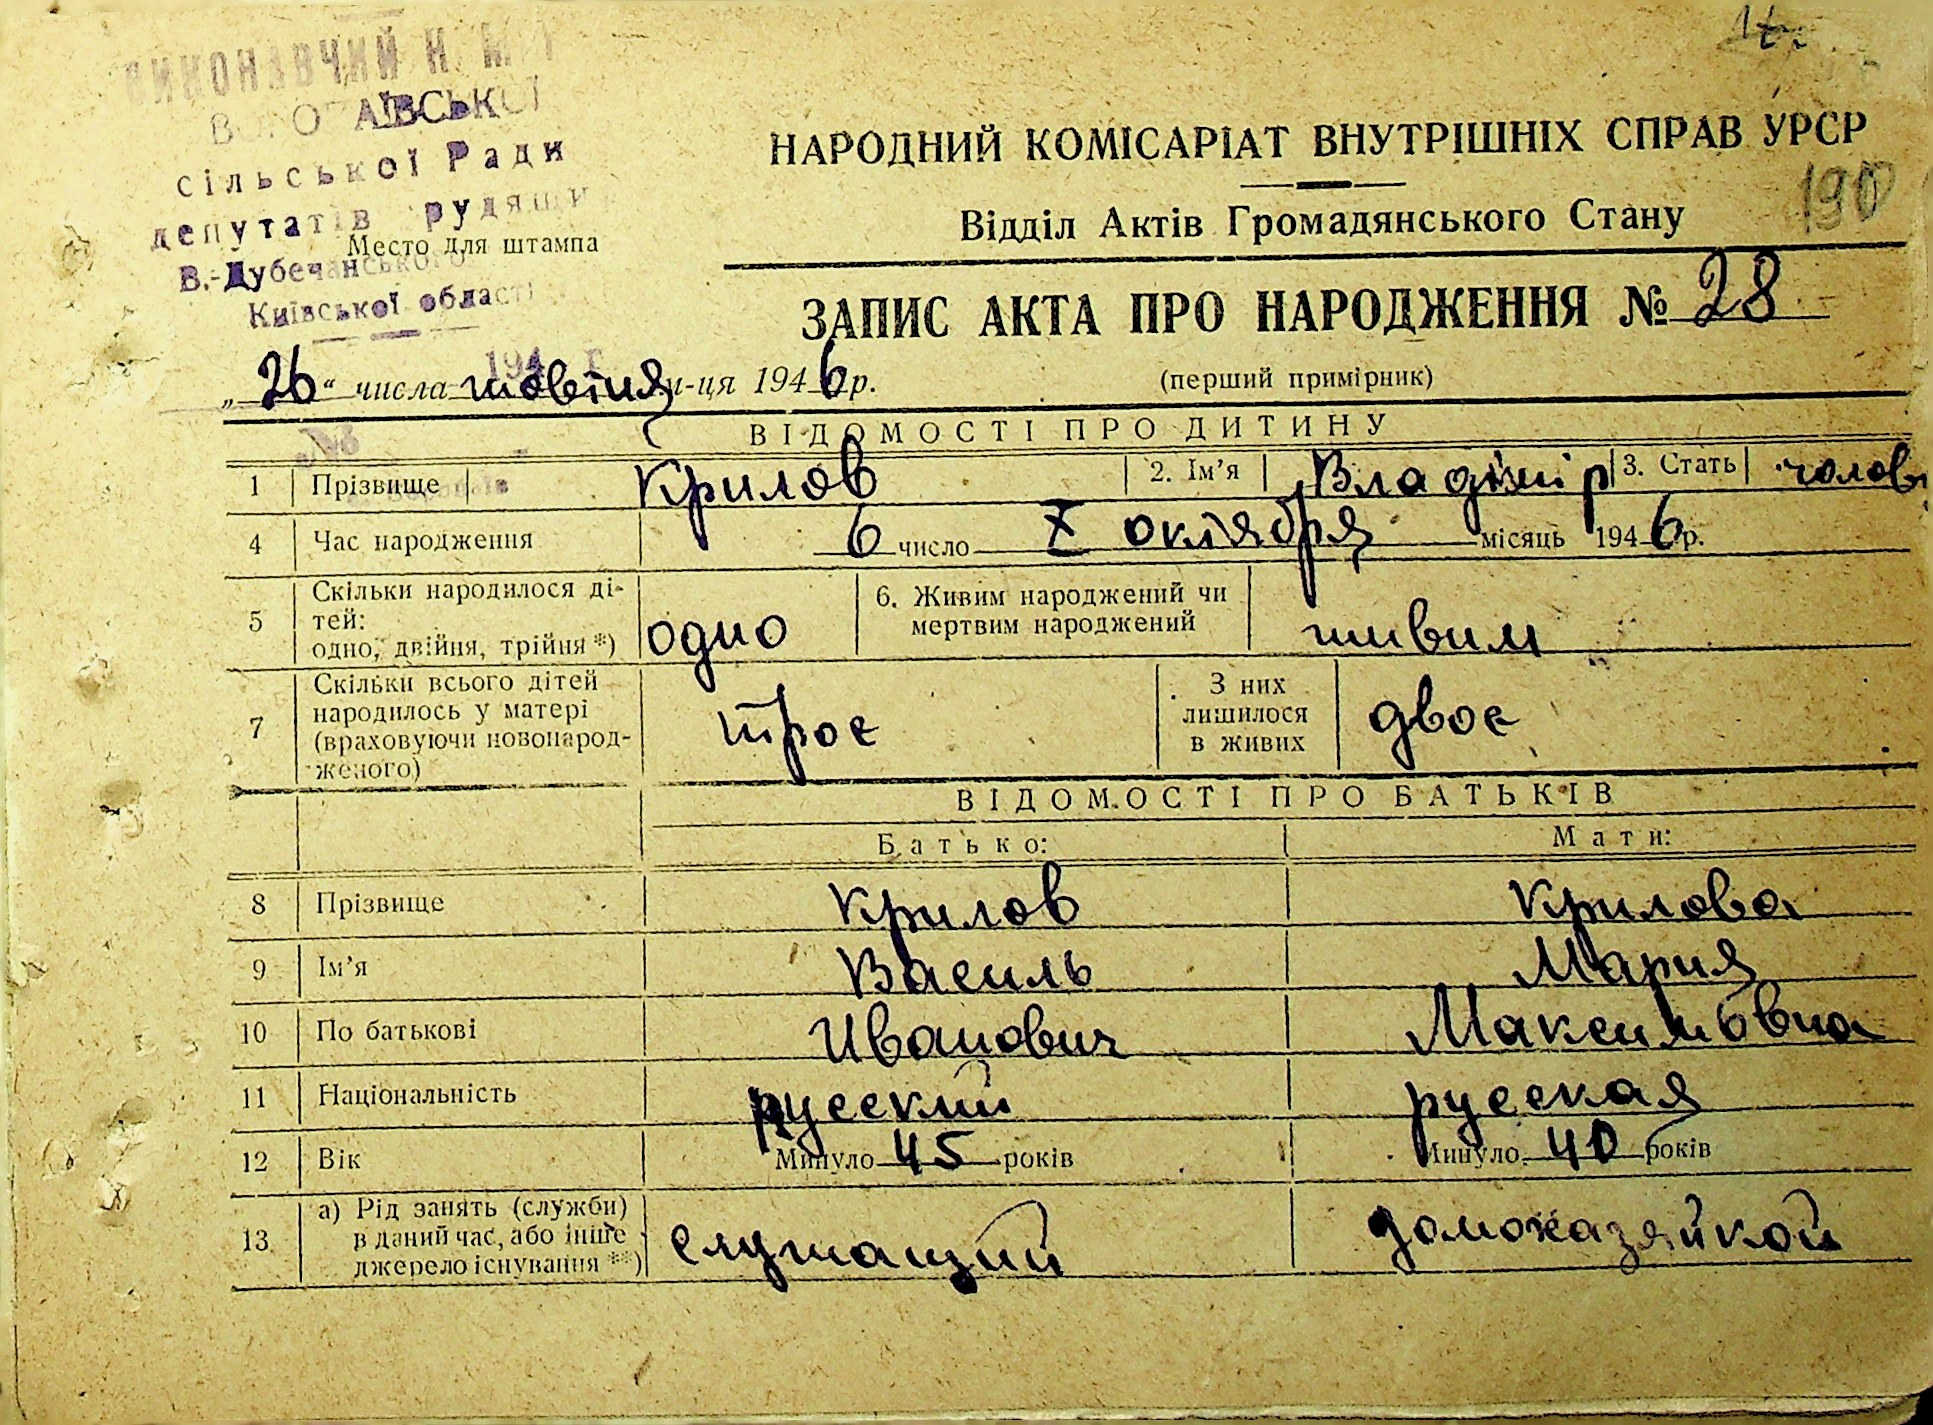 17.
ВИКОНАВЧИЙ
сільської Ради
депутатів трудящи
В.-Дубечанського
Київської області
Место для штампа
НАРОДНИЙ КОМІСАРІАТ ВНУТРІШНІХ СПРАВ УРСР
190
Відділ Актів Громадянського Стану
ЗАПИС АКТА ПРО НАРОДЖЕННЯ № 28
„26“ числа жовтня м-ця 1946 р.
(перший примірник)
№
ВІДОМОСТІ ПРО ДИТИНУ
1 Прізвище Крилов 2. Ім'я Владімір 3. Стать чолов
4 Час народження 6 число X октября місяць 1946 р.
5 Скільки народилося ді-
тей:
одно, двійня, трійня *) одно 6. Живим народжений чи
мертвим народжений живим
7 Скільки всього дітей
народилось у матері
(враховуючи новонарод-
женого) троє З них
лишилося
в живих двоє
ВІДОМОСТІ ПРО БАТЬКІВ
Батько: Мати:
8 Прізвище Крилов Крилова
9 Ім'я Василь Мария
10 По батькові Иванович Максимовна
11 Національність русский русская
12 Вік Минуло 45 років Минуло 40 років
13 а) Рід занять (служби)
в даний час, або інше
джерело існування **) служащий домохазяйкой